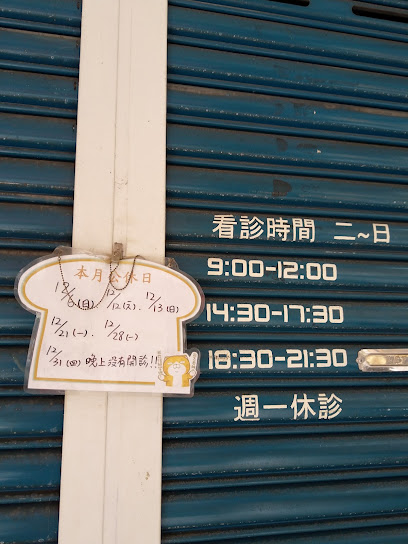 看診時間 二~日
9:00-12:00
14:30-17:30
18:30-21:30
週一休診
本月公休日
12/6(日). 12/12(六) 12/13(日)
12/21(一). 12/28(一)
12/31(四) 晚上沒有開診!!